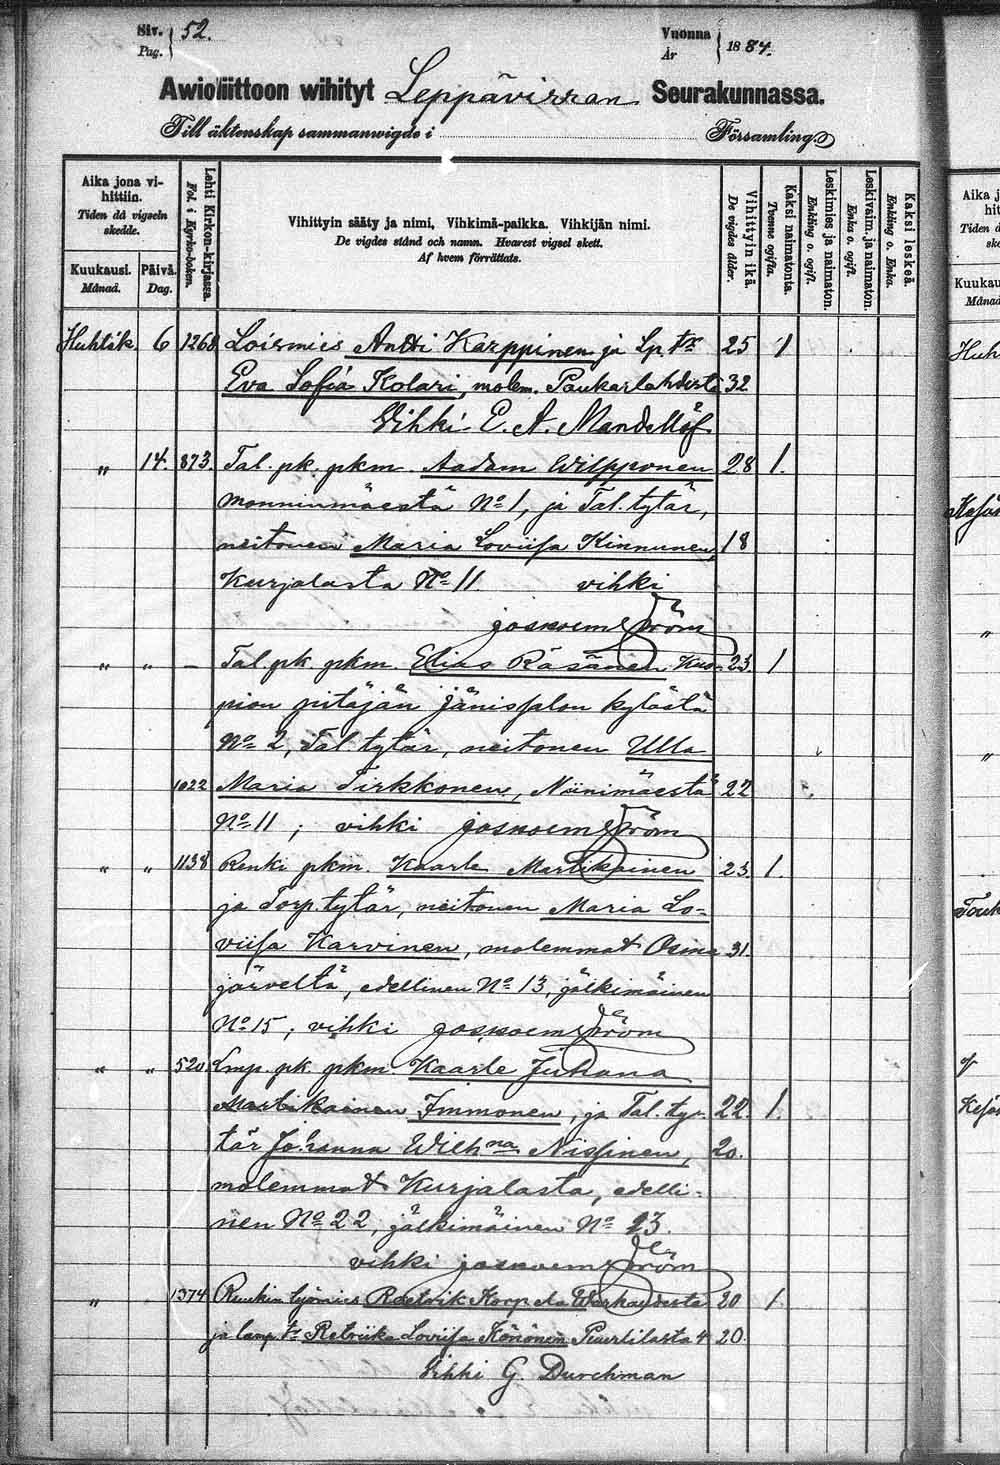 Siv. 52.
Pag.
Vuonna 1884.
År
Awioliittoon wihityt Leppävirran Seurakunnassa.
Till äktenskap sammanwigde i Församling.
Aika jona vihittiin.
Tiden då vigseln skedde.
Kuukausi.
Månad.
Päivä.
Dag.
Lehti Kirkon-kirjassa.
Fol. i Kyrko-boken.
Vihittyin sääty ja nimi, Vihkimä-paikka. Vihkijän nimi.
De vigdes stånd och namn. Hvarest vigsel skett.
Af hvem förrättats.
Vihittyin ikä.
De vigdes ålder.
Kaksi naimatonta.
Tvenne ogifta.
Leskimies ja naimaton.
Enkling o. ogift.
Leskivaim. ja naimaton.
Enka o. ogift.
Kaksi leskeä.
Enkling o. Enka.
Huhtik. 6 1268 Loismies Antti Karppinen ja Lp. tr 25 1
Eva Sofia Kolari, molem. Paukarlahdesta 32
Vihki E. A. Mandellöf
" 14. 873. Tal. pk. pkm. Aadam Wilpponen 28 1.
Monninmäestä No 1, ja Tal. tytär,
neitonen Maria Loviisa Kinnunen, 18
Kurjalasta No 11. vihki
" " — Tal. pk. pkm. Elias Räsänen Kuo- 23. 1
pion pitäjän Jänissalon kylästä
No 2, Tal. tytär, neitonen Ulla
1022 Maria Tirkkonen, Niinimäestä 22
No 11; vihki
" " 1138 Renki pkm. Kaarle Martikainen 23. 1.
ja Torp. tytär, neitonen Maria Lo=
viisa Karvinen, molemmat Osma 31.
järveltä, edellinen No 13, jälkimäinen
No 15; vihki
" " 520 Lmp. pk. pkm. Kaarle Juhana
Martikainen Immonen, ja Tal. ty- 22. 1.
tär Johanna Wilhna Nissinen, 20.
molemmat Kurjalasta, edelli=
nen No 22, jälkimäinen No 23.
vihki
" 1374 Ruukin työmies Raetrik Korp ela Warkaudesta 20 1.
ja lamp. tr Retriika Loviisa Könönen Puurtilasta 4 20.
Vihki G. Durchman